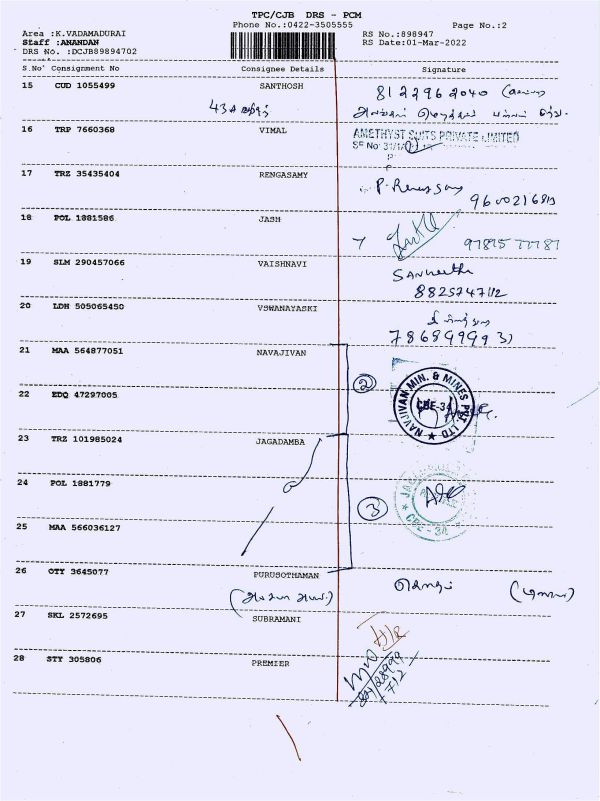 TPC/CJB DRS - PCM
Phone No.:0422-3505555
Page No.:2
Area :K.VADAMADURAI
RS No.:898947
Staff :ANANDAN
RS Date:01-Mar-2022
DRS No. :DCJB89894702
S.No' Consignment No Consignee Details Signature
15 CUD 1055499 SANTHOSH 8122962040
43A
16 TRP 7660368 VIMAL AMETHYST SUITS PRIVATE LIMITED
SF No 31/1
17 TRZ 35435404 RENGASAMY
9600216813
18 POL 1881586 JASH
19 SLM 290457066 VAISHNAVI Sangeetha
8825747112
20 LDH 505065450 VSWANAYASKI
21 MAA 564877051 NAVAJIVAN
2
NAVJIVAN MIN. & MINES PVT. LTD
CBE-34
22 EDQ 47297005
23 TRZ 101985024 JAGADAMBA
24 POL 1881779
3
CBE - 34
25 MAA 566036127
26 OTY 3645077 PURUSOTHAMAN
27 SKL 2572695 SUBRAMANI
28 STY 305806 PREMIER